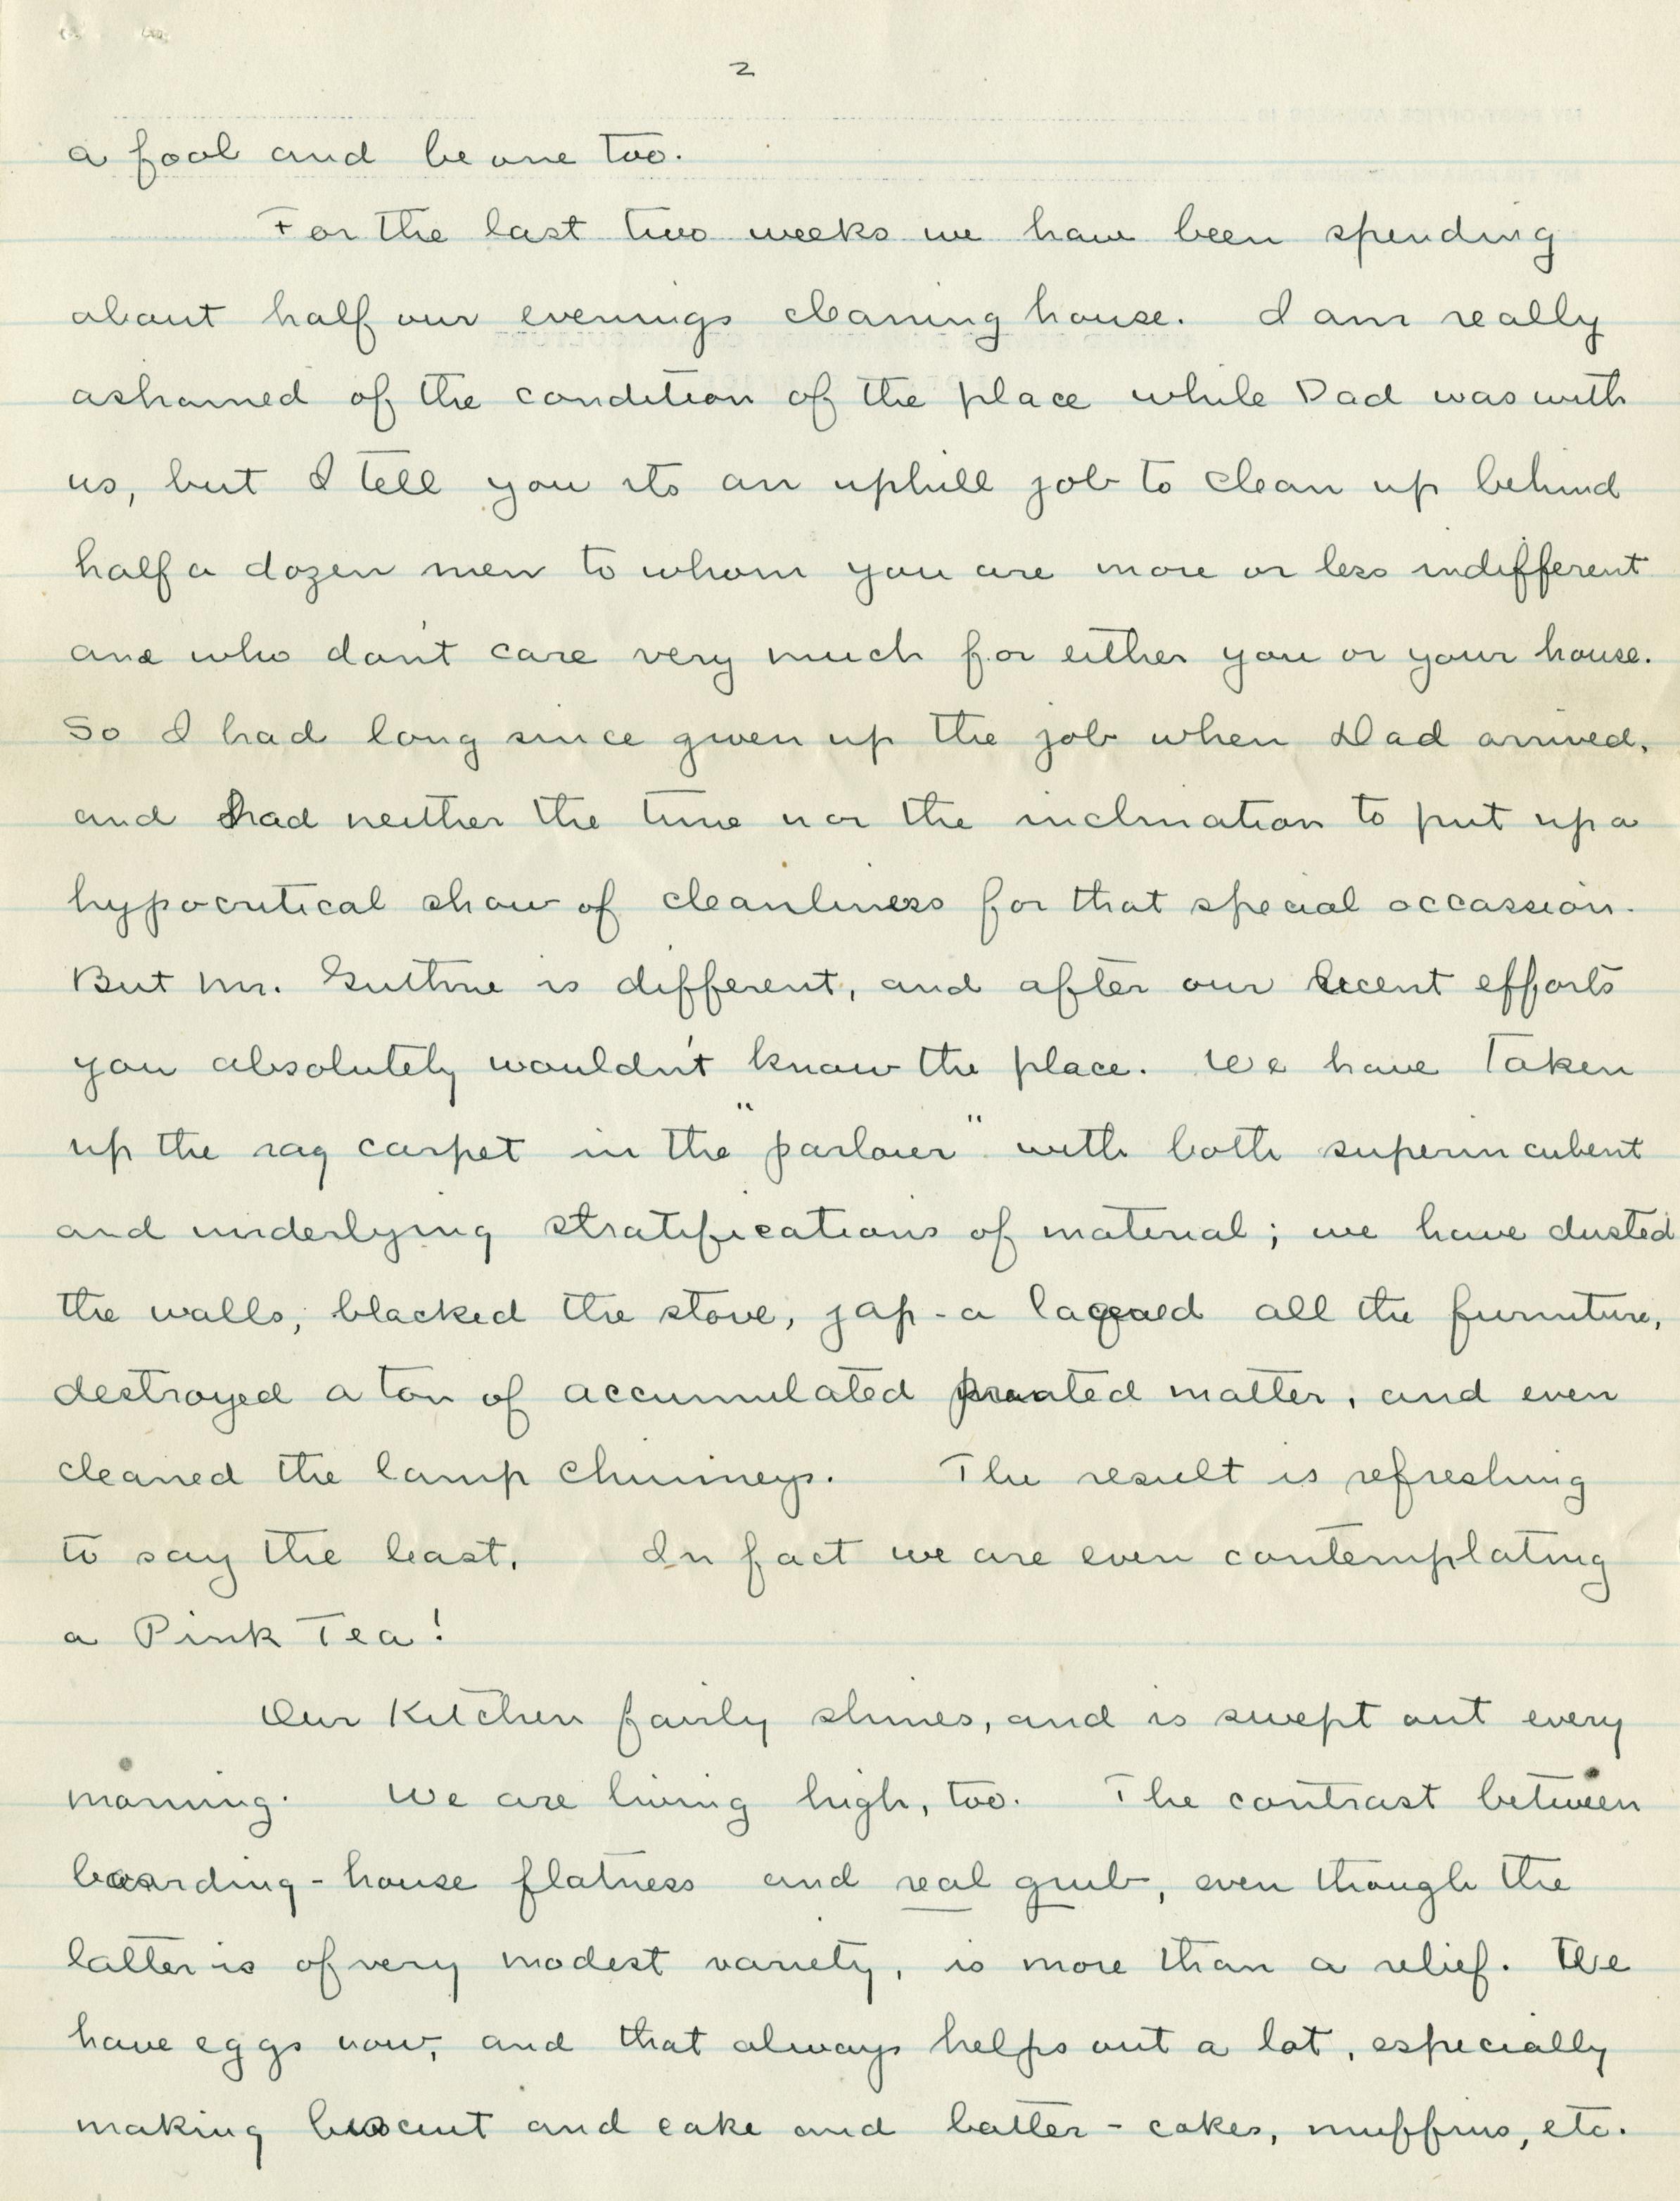 2
a fool and be one too.
For the last two weeks we have been spending
about half our evenings cleaning house. I am really
ashamed of the condition of the place while Dad was with
us, but I tell you its an uphill job to clean up behind
half a dozen men to whom you are more or less indifferent
and who don't care very much for either you or your house.
So I had long since given up the job when Dad arrived,
and had neither the time nor the inclination to put up a
hypocritical show of cleanliness for that special occassion.
But Mr. Guthrie is different, and after our recent efforts
you absolutely wouldn't know the place. We have taken
up the rag carpet in the "parlour" with both superincubent
and underlying stratifications of material; we have dusted
the walls, blacked the stove, jap-a all the furniture,
destroyed a ton of accumulated printed matter, and even
cleaned the lamp chimneys. The result is refreshing
to say the least. In fact we are even contemplating
a Pink Tea!
Our Kitchen fairly shines, and is swept out every
morning. We are living high, too. The contrast between
boarding-house flatness and real grub, even though the
latter is of very modest variety, is more than a relief. We
have eggs now, and that always helps out a lot, especially
making biscuit and cake and batter-cakes, muffins, etc.